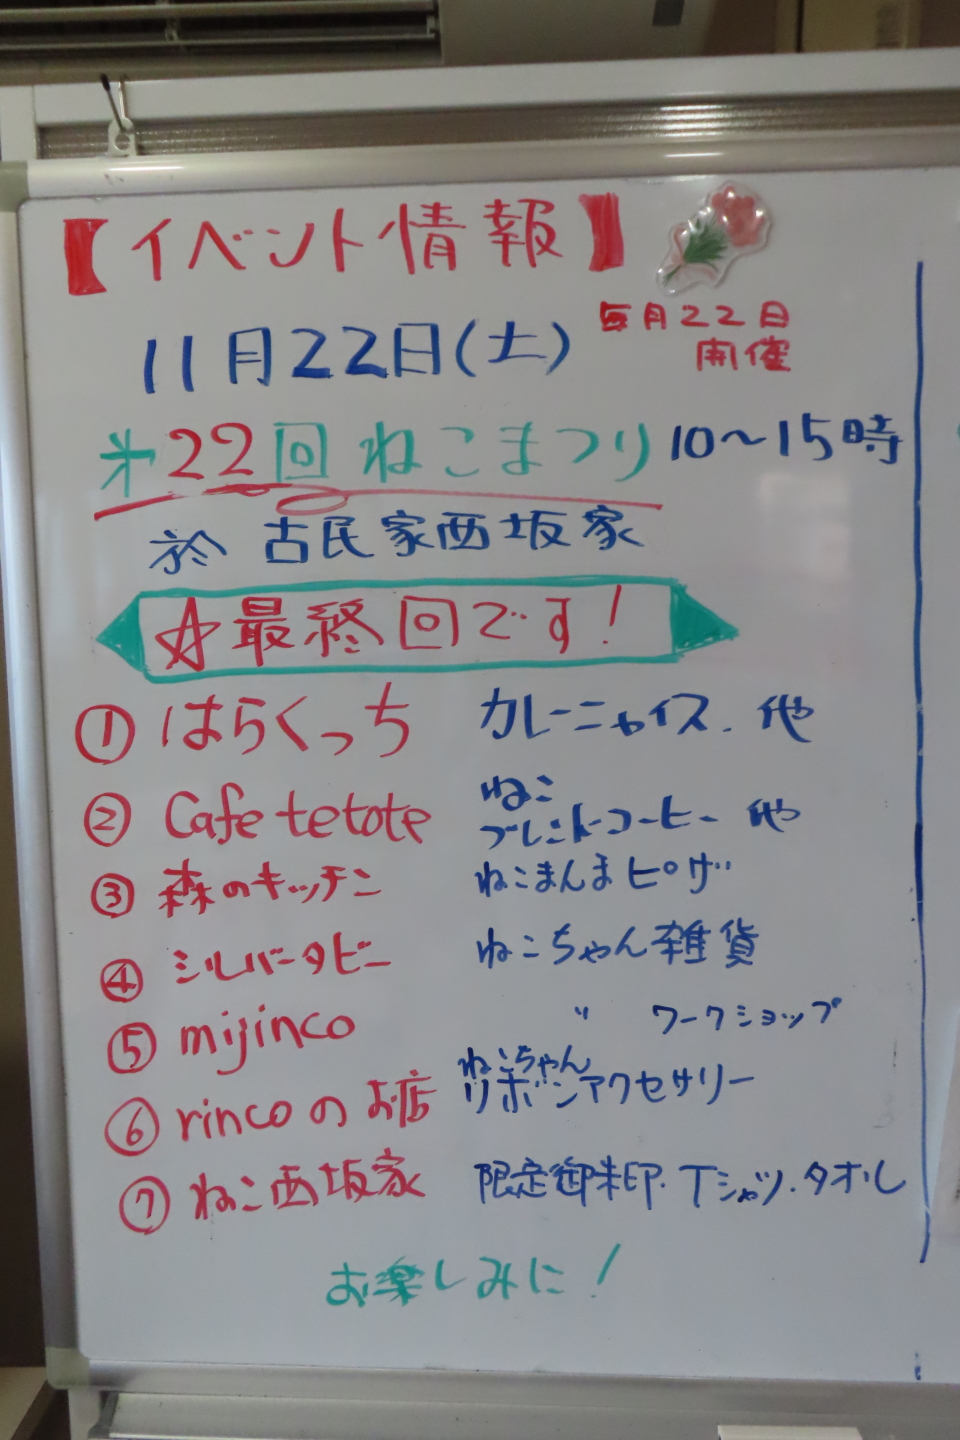 【イベント情報】
11月22日(土)
毎月22日
開催
第22回 ねこまつり 10〜15時
於 古民家西坂家
☆最終回です!
① はらくっち カレーニャイス. 他
② Cafe tetote ねこ
ブレンドコーヒー 他
③ 森のキッチン ねこまんまピザ
④ シルバータビー ねこちゃん雑貨
⑤ mijinco 〃 ワークショップ
⑥ rincoのお店 ねこちゃん
リボンアクセサリー
⑦ ねこ西坂家 限定御朱印.Tシャツ.タオル
お楽しみに!